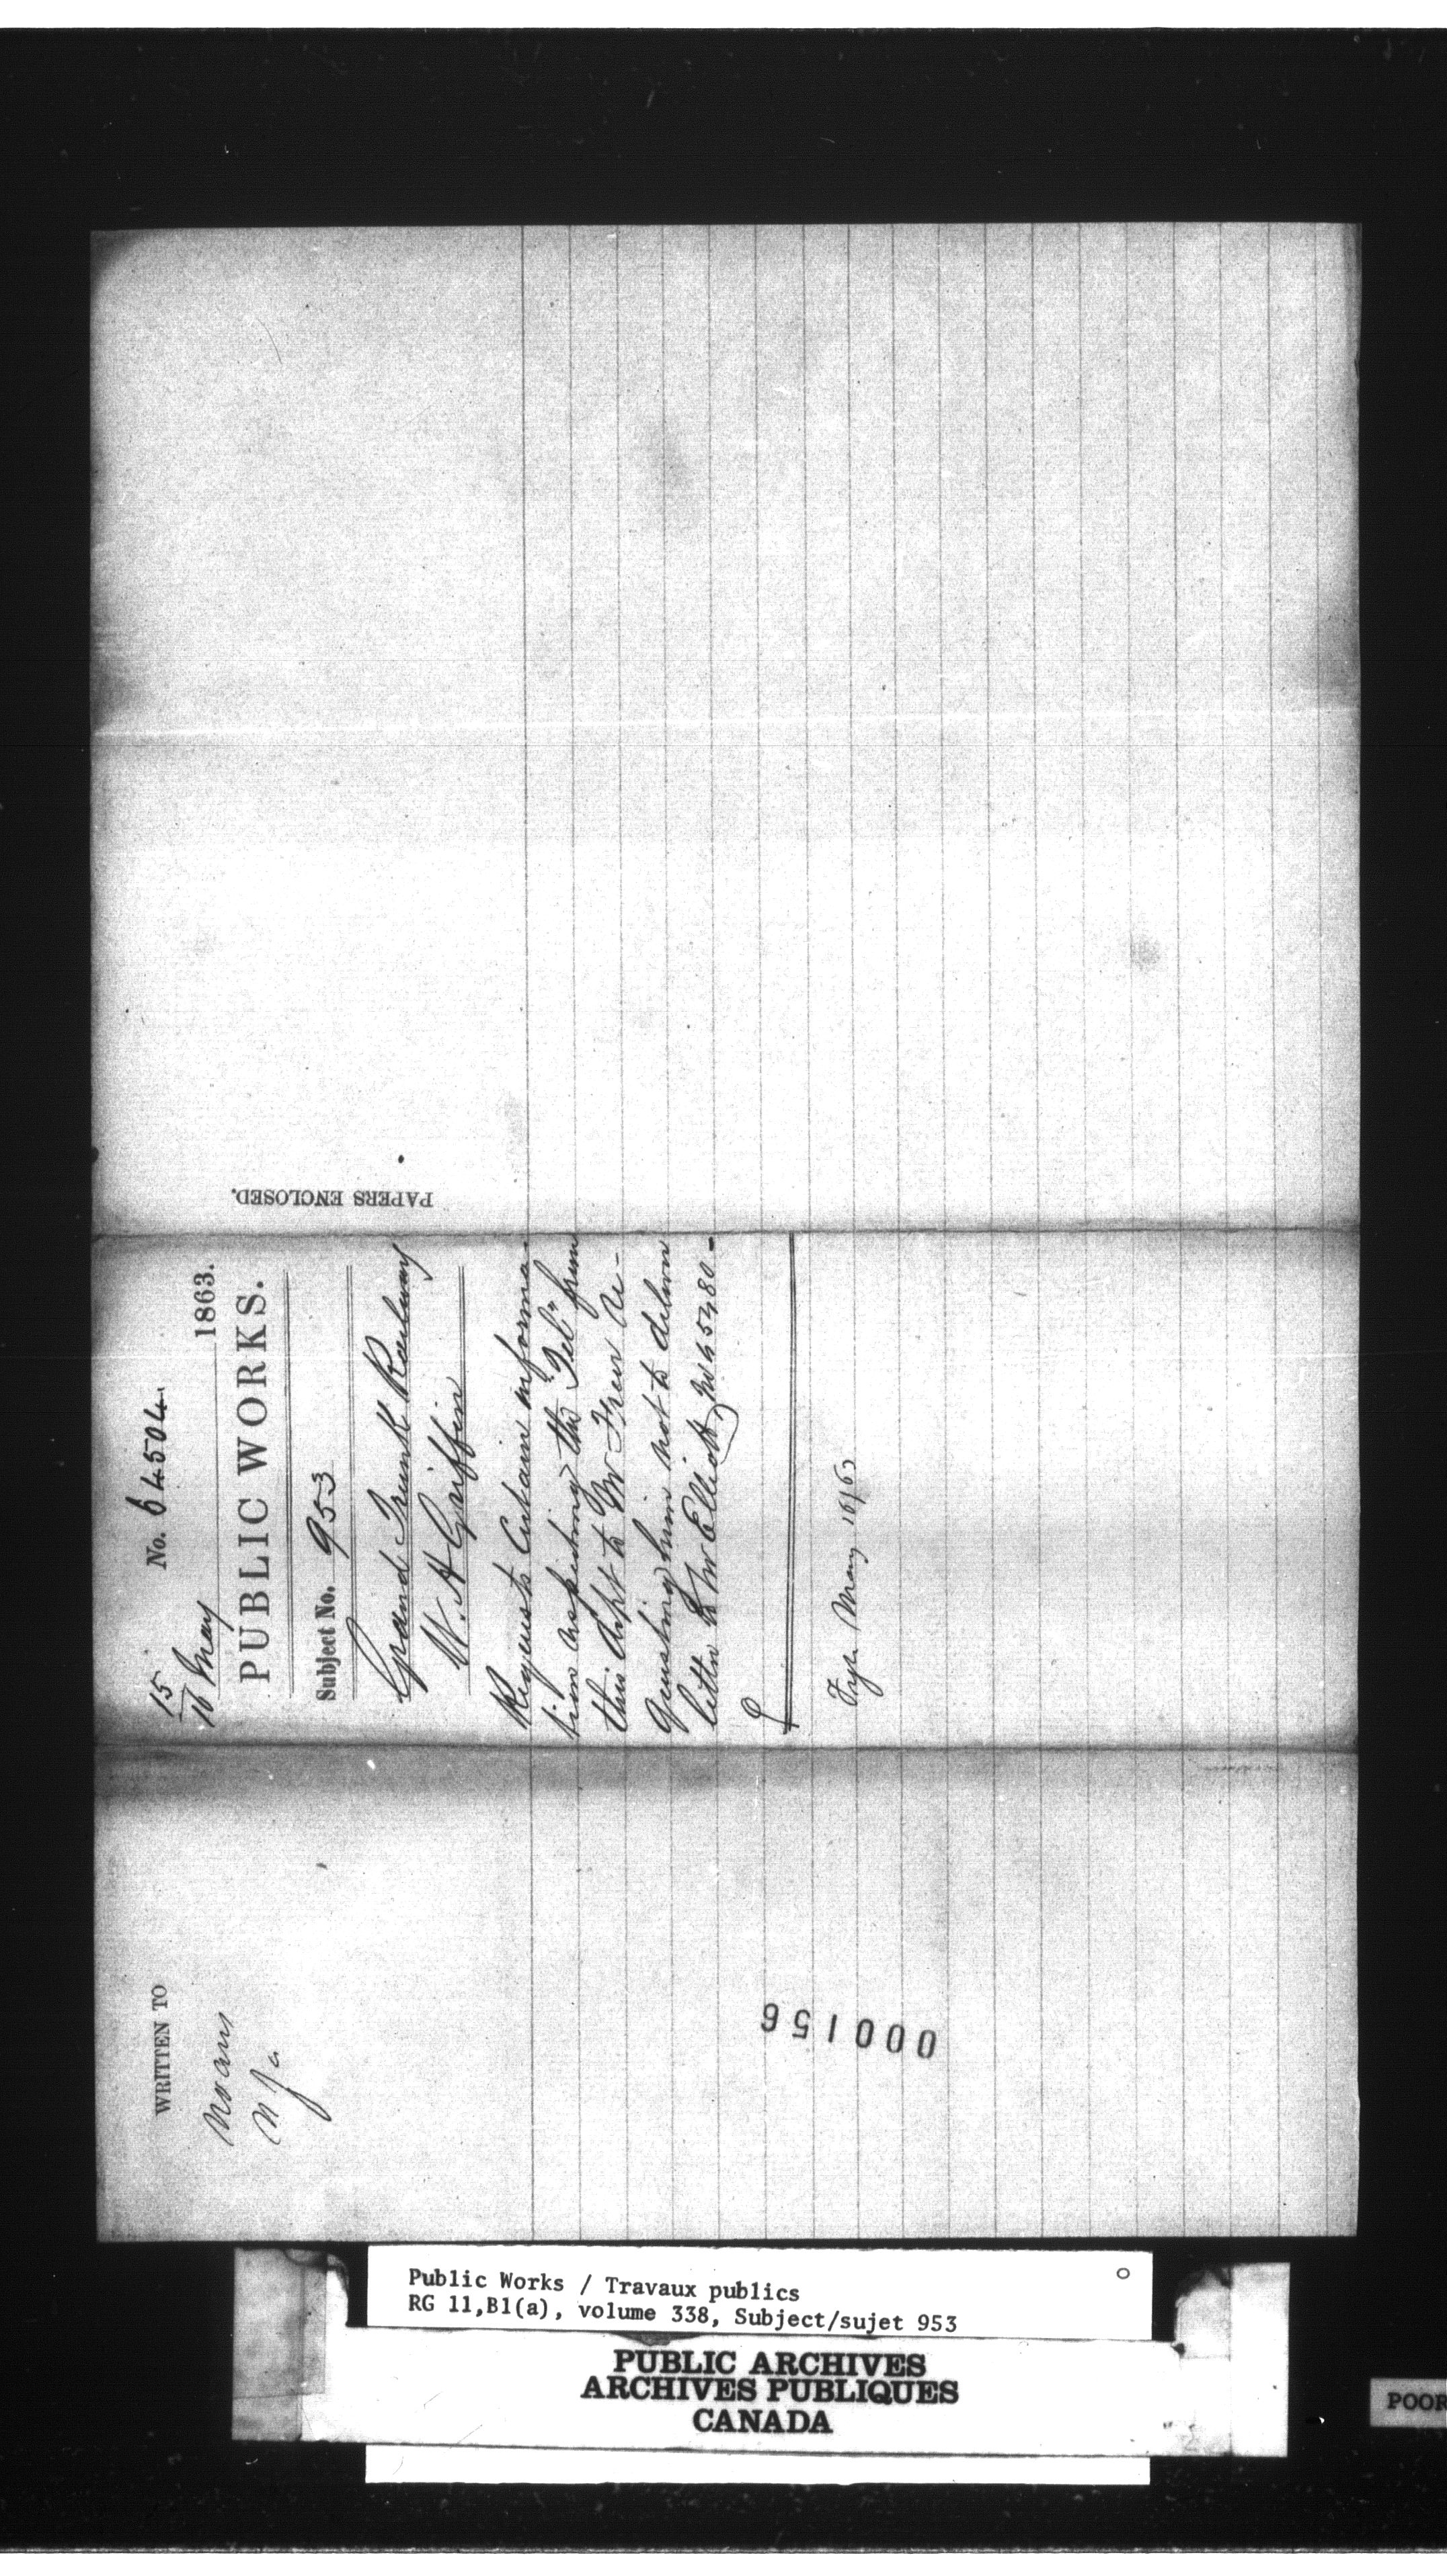 15
16 May 1863.
No. 64504
PUBLIC WORKS.
Subject No. 953
Grand Trunk Railway
W. H. Griffin
Requests certain informa-
tion respecting the Tel" from
this Dept to Mr Freer re-
questing him not to deliver
letter to Mr Elliott, No 65480 -
Fyle May 16/63
PAPERS ENCLOSED.
WRITTEN TO
000156
Public Works / Travaux publics
RG 11,B1(a), volume 338, Subject/sujet 953
PUBLIC ARCHIVES
ARCHIVES PUBLIQUES
CANADA
POOR